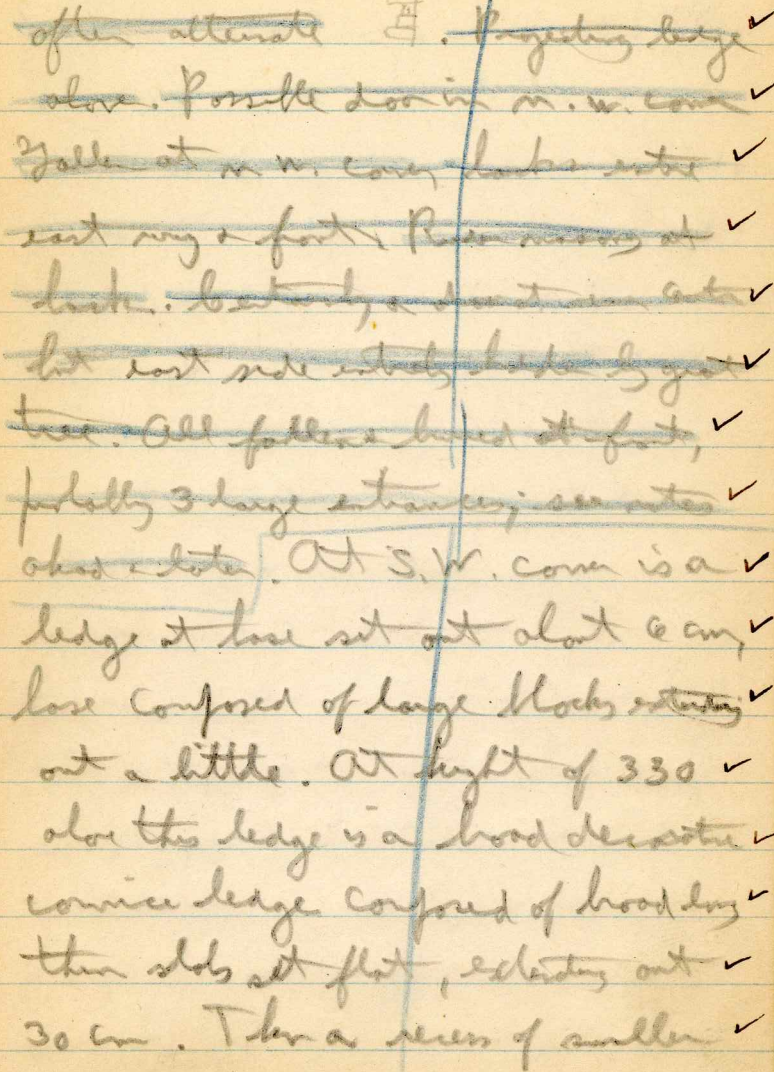 often alternate II. Projecting ledge
above. Possible door in n.w. corner
Fallen at n.w. corner, looks entire
east wing & front. Rude masonry at
back. Certainly a door at near center
but east side entirely hidden by great
tree. All fallen & buried at front,
probably 3 large entrances; see notes
ahead & later. At S.W. corner is a
ledge at base set out about 6 cm,
base composed of large blocks extending
out a little. At height of 330
above this ledge is a broad decorative
cornice ledge composed of broad long
thin slabs set flat, extending out
30 cm. Then a recess of smaller